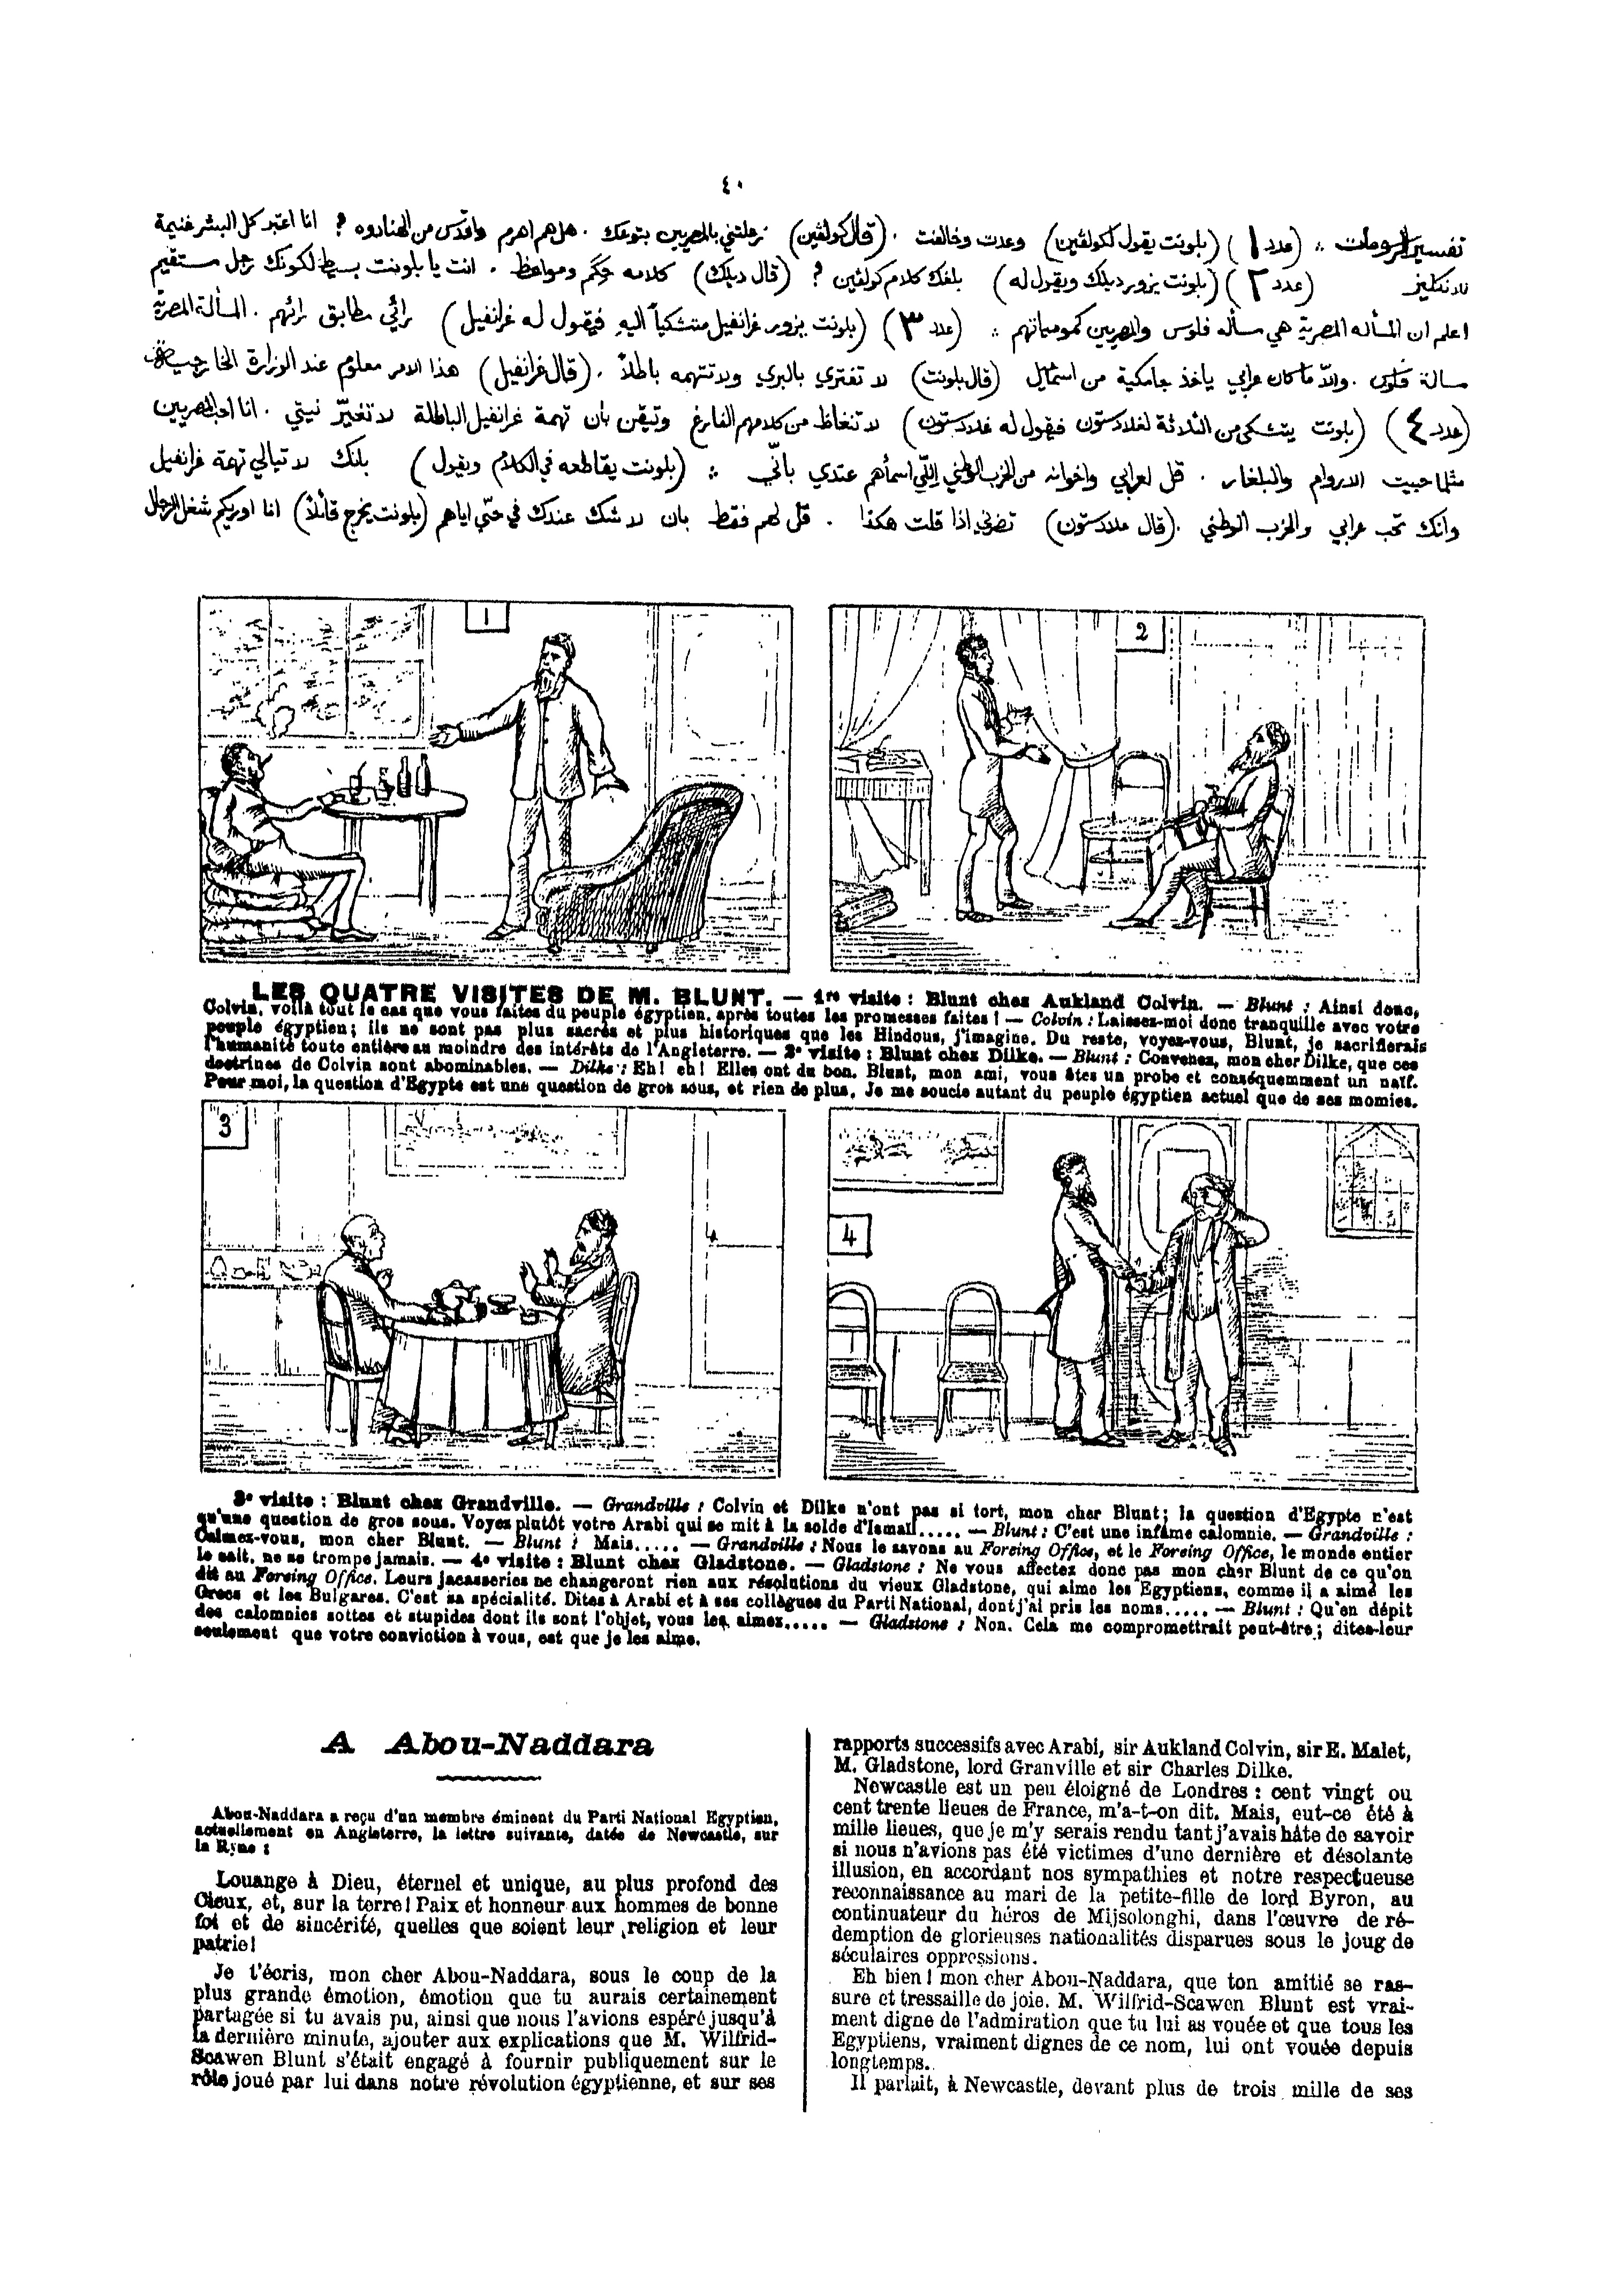 ٤٠
تفسير الرسومات ∴ (عدد ١) (بلونت يقول لكولفين) وعدت وخالفت . (قال كولفين) زهلتني بالمصريين بتوعك . هل هم اهرم واقدس من الهنادوه ؟ انا اعتبر كل البشر غنيمة
للانكليز (عدد ٢) (بلونت يزور ديلك ويقول له) بلغك كلام كولفين ؟ (قال ديلك) كلامه حِكَم ومواعظ . انت يا بلونت بسيط لكونك رجل مستقيم
اعلم ان المسأله المصرية هي مسأله فلوس والمصريين كمومياتهم ∴ (عدد ٣) (بلونت يزور غرانفيل متشكياً اليهِ فيقول له غرانفيل) رائي مطابق لرائهم . المسألة المصرية
مسالة فلوس . والّا ما كان عرابي ياخذ جامكية من اسمعيل (قال بلونت) لا تفتري بالبري ولا تتهمه باطلاً . (قال غرانفيل) هذا الامر معلوم عند الوزارة الخارجية
(عدد ٤) (بلونت يتشكى من الثلاثة لغلادستون فيقول له غلادستون) لا تنغاظ من كلامهم الفارغ وتيقن بأن تهمة غرانفيل الباطلة لا تغيّر نيتي . انا احب المصريين
مثلما حبيت الاروام والبلغار . قل لعرابي واخوانه من الحزب الوطني اللّي اسمأهم عندي بأنّي ∴ (بلونت يقاطعه في الكلام ويقول) بانك لا تبالي تهمة غرانفيل
وانك تحب عرابي والحزب الوطني . (قال غلادستون) تضرني اذا قلت هكذا . قل لهم فقط بان لا شك عندك في حبّي اياهم (بلونت يخرج قائلاً) انا اوريكم شغل الرجال
1
2
LES QUATRE VISITES DE M. BLUNT. — 1re visite : Blunt chez Aukland Colvin. — Blunt : Ainsi donc,
Colvin, voilà tout le cas que vous faites du peuple égyptien, après toutes les promesses faites ! — Colvin : Laissez-moi donc tranquille avec votre
peuple égyptien ; ils ne sont pas plus sacrés et plus historiques que les Hindous, j'imagine. Du reste, voyez-vous, Blunt, je sacrifierais
l'humanité toute entière au moindre des intérêts de l'Angleterre. — 2e visite : Blunt chez Dilke. — Blunt : Convenez, mon cher Dilke, que ces
doctrines de Colvin sont abominables. — Dilke : Eh ! eh ! Elles ont du bon. Blunt, mon ami, vous êtes un probe et conséquemment un naïf.
Pour moi, la question d'Egypte est une question de gros sous, et rien de plus. Je me soucie autant du peuple égyptien actuel que de ses momies.
3
4
3e visite : Blunt chez Grandville. — Grandville : Colvin et Dilke n'ont pas si tort, mon cher Blunt ; la question d'Egypte n'est
qu'une question de gros sous. Voyez plutôt votre Arabi qui se mit à la solde d'Ismaïl..... — Blunt : C'est une infâme calomnie. — Grandville :
Calmez-vous, mon cher Blunt. — Blunt : Mais..... — Grandville : Nous le savons au Foreing Office, et le Foreing Office, le monde entier
le sait, ne se trompe jamais. — 4e visite : Blunt chez Gladstone. — Gladstone : Ne vous affectez donc pas mon cher Blunt de ce qu'on
dit au Foreing Office. Leurs jacasseries ne changeront rien aux résolutions du vieux Gladstone, qui aime les Egyptiens, comme il a aimé les
Grecs et les Bulgares. C'est sa spécialité. Dites à Arabi et à ses collègues du Parti National, dont j'ai pris les noms..... — Blunt : Qu'en dépit
des calomnies sottes et stupides dont ils sont l'objet, vous les aimez..... — Gladstone : Non. Cela me compromettrait peut-être ; dites-leur
seulement que votre conviction à vous, est que je les aime.
A Abou-Naddara
Abou-Naddara a reçu d'un membre éminent du Parti National Egyptien,
actuellement en Angleterre, la lettre suivante, datée de Newcastle, sur
la Ryne :
Louange à Dieu, éternel et unique, au plus profond des
Cieux, et, sur la terre ! Paix et honneur aux hommes de bonne
foi et de sincérité, quelles que soient leur religion et leur
patrie !
Je t'écris, mon cher Abou-Naddara, sous le coup de la
plus grande émotion, émotion que tu aurais certainement
partagée si tu avais pu, ainsi que nous l'avions espéré jusqu'à
la dernière minute, ajouter aux explications que M. Wilfrid-
Scawen Blunt s'était engagé à fournir publiquement sur le
rôle joué par lui dans notre révolution égyptienne, et sur ses
rapports successifs avec Arabi, sir Aukland Colvin, sir E. Malet,
M. Gladstone, lord Granville et sir Charles Dilke.
Newcastle est un peu éloigné de Londres : cent vingt ou
cent trente lieues de France, m'a-t-on dit. Mais, eut-ce été à
mille lieues, que je m'y serais rendu tant j'avais hâte de savoir
si nous n'avions pas été victimes d'une dernière et désolante
illusion, en accordant nos sympathies et notre respectueuse
reconnaissance au mari de la petite-fille de lord Byron, au
continuateur du héros de Mijsolonghi, dans l'œuvre de ré-
demption de glorieuses nationalités disparues sous le joug de
séculaires oppressions.
Eh bien ! mon cher Abou-Naddara, que ton amitié se ras-
sure et tressaille de joie. M. Wilfrid-Scawen Blunt est vrai-
ment digne de l'admiration que tu lui as vouée et que tous les
Egyptiens, vraiment dignes de ce nom, lui ont vouée depuis
longtemps.
Il parlait, à Newcastle, devant plus de trois mille de ses